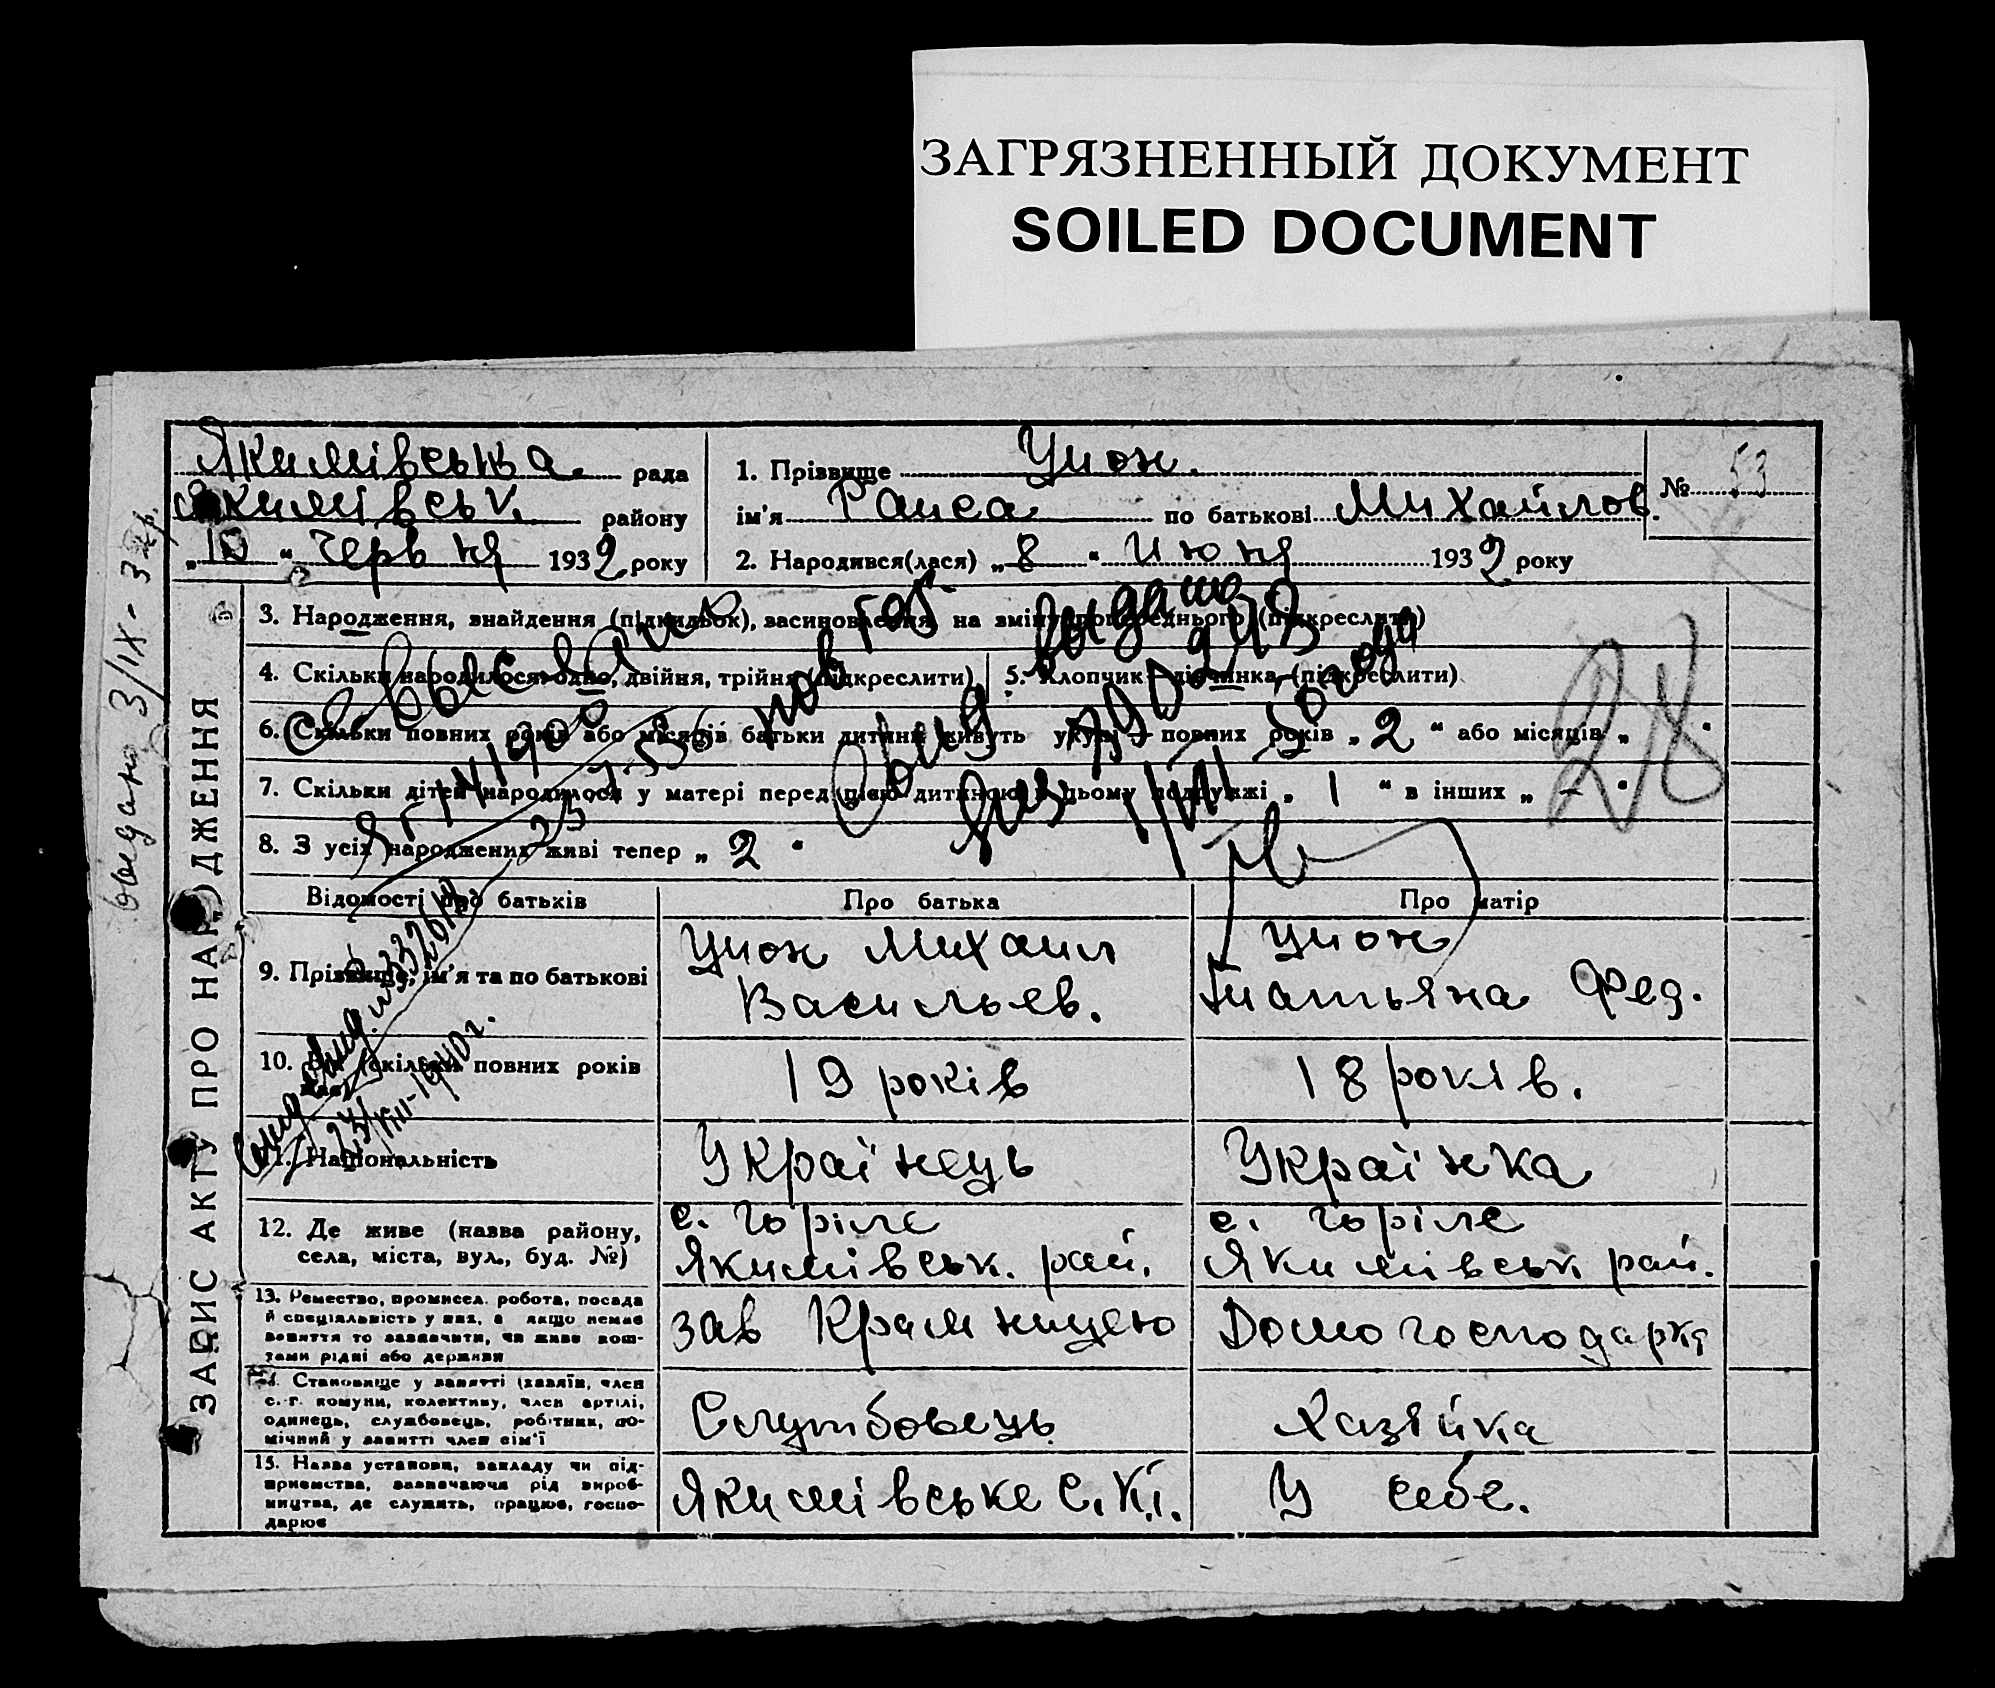 ЗАГРЯЗНЕННЫЙ ДОКУМЕНТ
SOILED DOCUMENT
Якимівська рада
Якимівськ. району
„10“ Червня 1932 року
1. Прізвище Унон.
ім'я Раиса по батькові Михайлов.
2. Народився(лася) „8“ Июня 1932 року
№ 53
ЗАПИС АКТУ ПРО НАРОДЖЕННЯ
видано 3/IX-
3. Народження, внайдення (підкидьок), засиновлення, на зміну попереднього (підкреслить)
4. Скільки народилося: одно, двійня, трійня (підкреслити)
5. Хлопчик—дівчинка (підкреслити)
6. Скільки повних років або місяців батьки дитини живуть укупі — повних років „2“ або місяців „ “
7. Скільки дітей народилося у матері перед цією дитиною в цьому подружжі „1“ в інших „-“
8. З усіх народжених живі тепер „2“
28
Відомості про батьків
Про батька
Про матір
9. Прізвище, ім'я та по батькові
Унон Михаил
Васильев.
Унон
Татьяна Фед.
10. Вік (скільки повних років
19 років
18 років.
23/VIII-1940г.
11. Національність
Українець
Українка
12. Де живе (назва району,
села, міста, вул., буд. №)
с. Горіле
Якимівськ. рай.
с. Горіле
Якимівськ рай.
13. Ремество, промисел. робота, посада
й спеціальність у них, а якщо немає
заняття то зазначити, чи живе кош-
тами рідні або держави
зав Крамницею
Домогосподарка
14. Становище у занятті (хазяїн, член
с.-г. комуни, колективу, член артілі,
одинець, службовець, робітник, по-
мічний у занятті член сім'ї
Службовець
Хазяйка
15. Назва установи, закладу чи під-
приємства, зазначаючи рід вироб-
ництва, де служить, працює, госпо-
дарює
Якимівське С.К.І.
У себе.